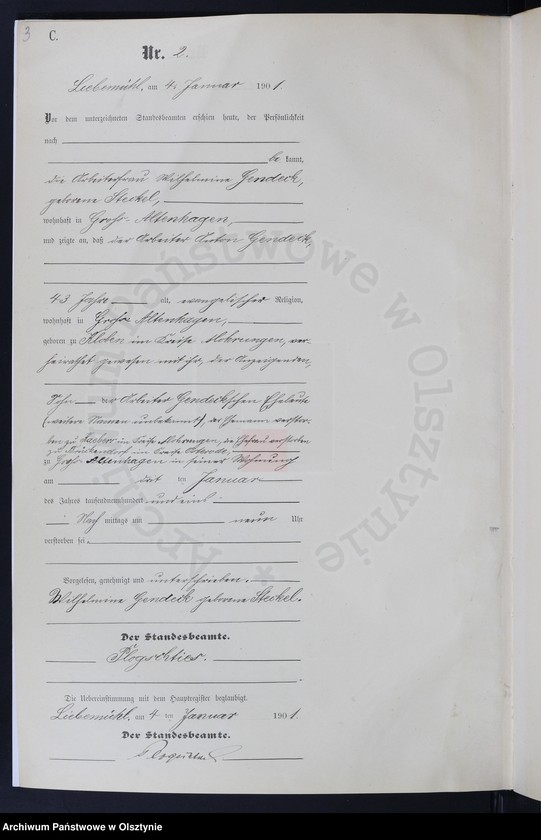 3
C.
Nr. 2.
Liebemühl, am 4. Januar 1901.
Vor dem unterzeichneten Standesbeamten erschien heute, der Persönlichkeit
nach
be kannt,
die Arbeiterfrau Wilhelmine Gendeck,
geborene Steckel,
wohnhaft in Groß-Altenhagen,
und zeigte an, daß der Arbeiter Anton Gendeck,
43 Jahre alt, evangelischer Religion,
wohnhaft in Groß-Altenhagen,
geboren zu Kloben im Kreise Mohrungen, ver-
heirathet gewesen mit ihr, der Anzeigenden,
Sohn der Arbeiter Gendeckschen Eheleute
(weitere Namen unbekannt), der Ehemann verstor-
ben zu im Kreise Mohrungen, die Ehefrau verstorben
zu im Kreise Osterode,
zu Groß-Altenhagen in seiner Wohnung
am ten Januar
des Jahres tausendneunhundert und eins
Nach mittags um neun Uhr
verstorben sei.
Vorgelesen, genehmigt und unterschrieben.
Wilhelmine Gendeck geborene Steckel.
Der Standesbeamte.
Plogschties.
Die Uebereinstimmung mit dem Hauptregister beglaubigt.
Liebemühl, am 4 ten Januar 1901.
Der Standesbeamte.
Archiwum Państwowe w Olsztynie *
Archiwum Państwowe w Olsztynie